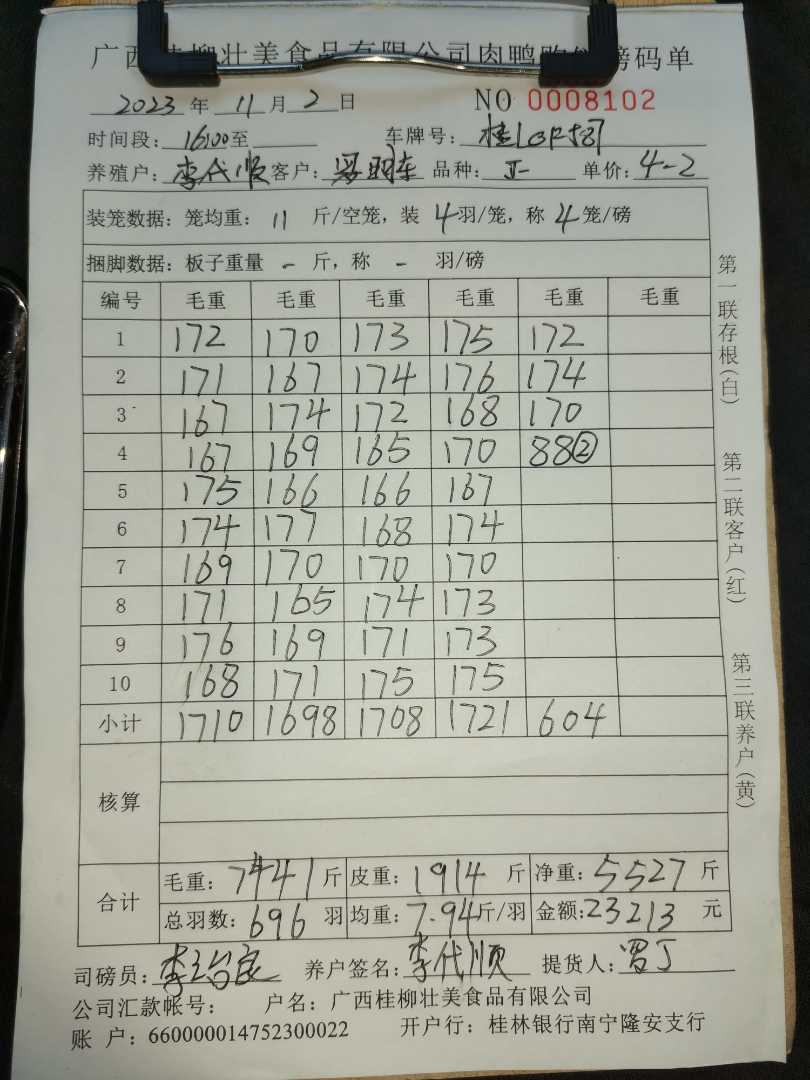 广西桂柳壮美食品有限公司肉鸭购销磅码单
2023年11月2日 NO 0008102
时间段：16:00至 车牌号：桂
养殖户：李代顺 客户： 品种： 单价：4-2
装笼数据：笼均重：11 斤/空笼，装4羽/笼，称4笼/磅
捆脚数据：板子重量 - 斤，称 - 羽/磅
编号 毛重 毛重 毛重 毛重 毛重 毛重
1 172 170 173 175 172
2 171 167 174 176 174
3 167 174 172 168 170
4 167 169 165 170 88②
5 175 166 166 167
6 174 177 168 174
7 169 170 170 170
8 171 165 174 173
9 176 169 171 173
10 168 171 175 175
小计 1710 1698 1708 1721 604
核算
合计
毛重：7441斤 皮重：1914斤 净重：5527斤
总羽数：696羽 均重：7.94斤/羽 金额：23213元
司磅员： 养户签名：李代顺 提货人：
公司汇款帐号： 户名：广西桂柳壮美食品有限公司
账 户：660000014752300022 开户行：桂林银行南宁隆安支行
第一联存根（白）
第二联客户（红）
第三联养户（黄）